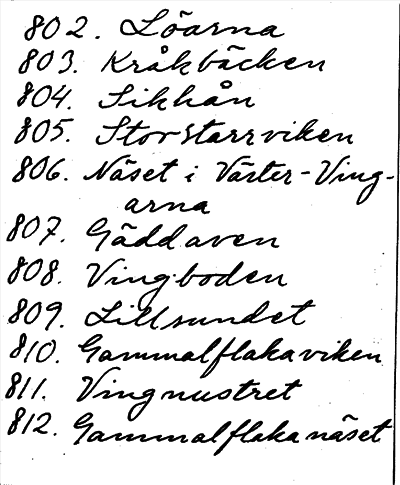 802. Löarna
803. Kråkbäcken
804. Sikhån
805. Storstarrviken
806. Näset i Väster-Ving-
arna
807. Gäddaven
808. Vingboden
809. Lillsundet
810. Gammalflakaviken
811. Vingnustret
812. Gammalflakanäset